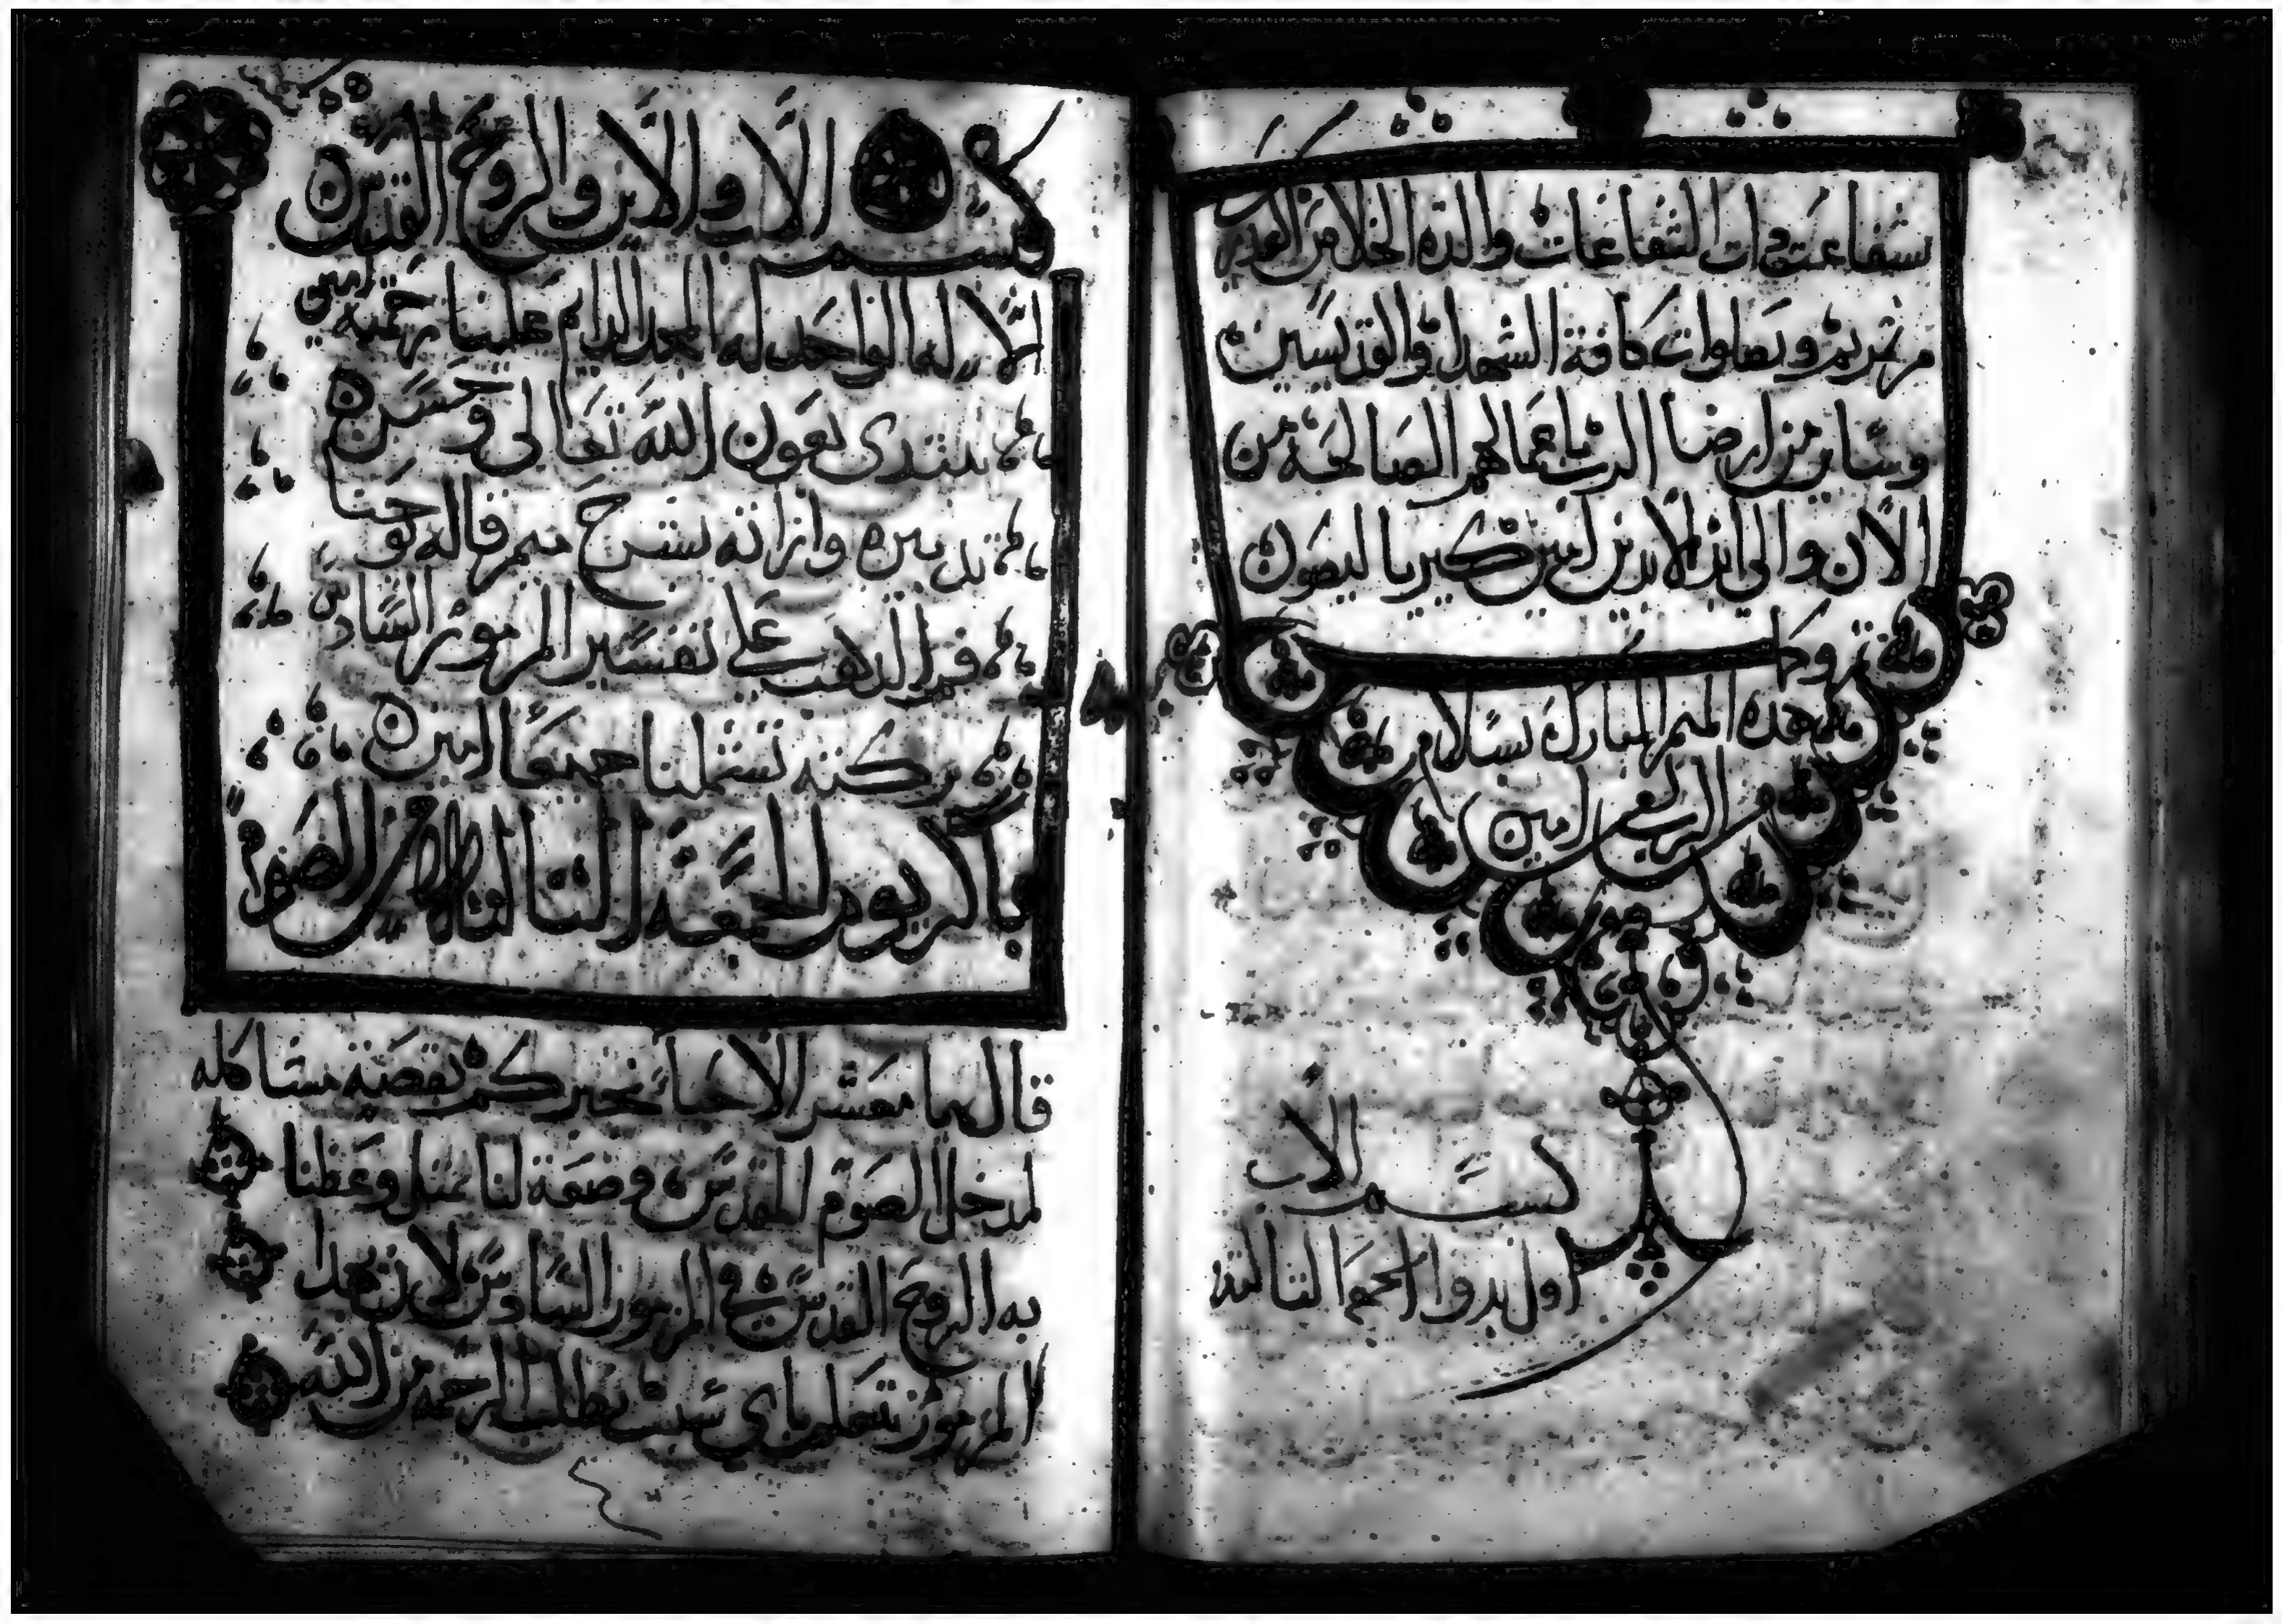 شفاعت دات الشفاعات والدة الخلاص العدرى
مرتمريم وبصلوات كافة الشهدا والقديسين
وساير من ارضا الرب باعماله الصالحة من
الان والى ابد الابدين امين كيرياليصون
تمت هده الميمر المبارك بسلام من
الرب امين
بسم الاب
اول بدوا الجمعة التالتة
بسم الاب والابن والروح القدس
الاله الواحد له المجد الدايم علينا رحمته امين
نبتدى بعون الله تعالى وحسن
تدبيره وارادته بشرح ميمر قاله يوحنا
فم الدهب على تفسير المزمور السادس
بركته تشملنا جميعا امين
باكر يوم الجمعة التالتة من الصوم
قال يا معشر الاحبا نخبركم بقصة مشاكله
لمدخل الصوم المقدس وضعة لنا ووعظنا
به الروح القدس في المزمور السادس لان هدا
المزمور تعليم باي سبب نطلب الرحمه من الله